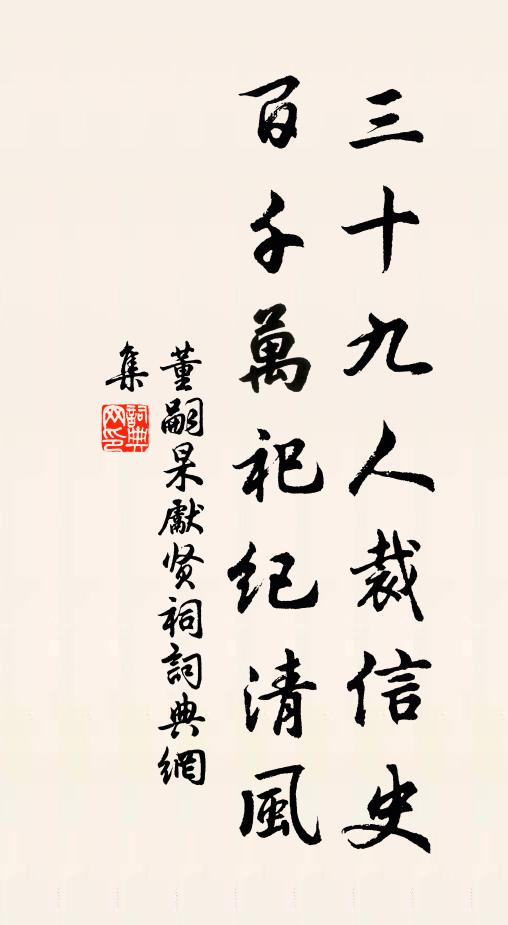 三十九人裁信史
百千萬祀纪清風
董嗣杲獻贤祠詞典網
集
詞典
网印